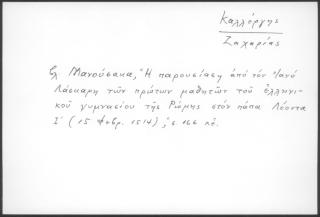 Καλλέργης
Ζαχαρίας
βλ Μανούσακα, "Ἡ παρουσίαση ἀπό τόν Ἰανό
Λάσκαρη τῶν πρώτων μαθητῶν τοῦ ἑλληνι-
κοῦ γυμνασίου τῆς Ρώμης στόν πάπα Λέοντα
Ι΄ (15 Φεβρ. 1514)", σ. 166 κἑ.